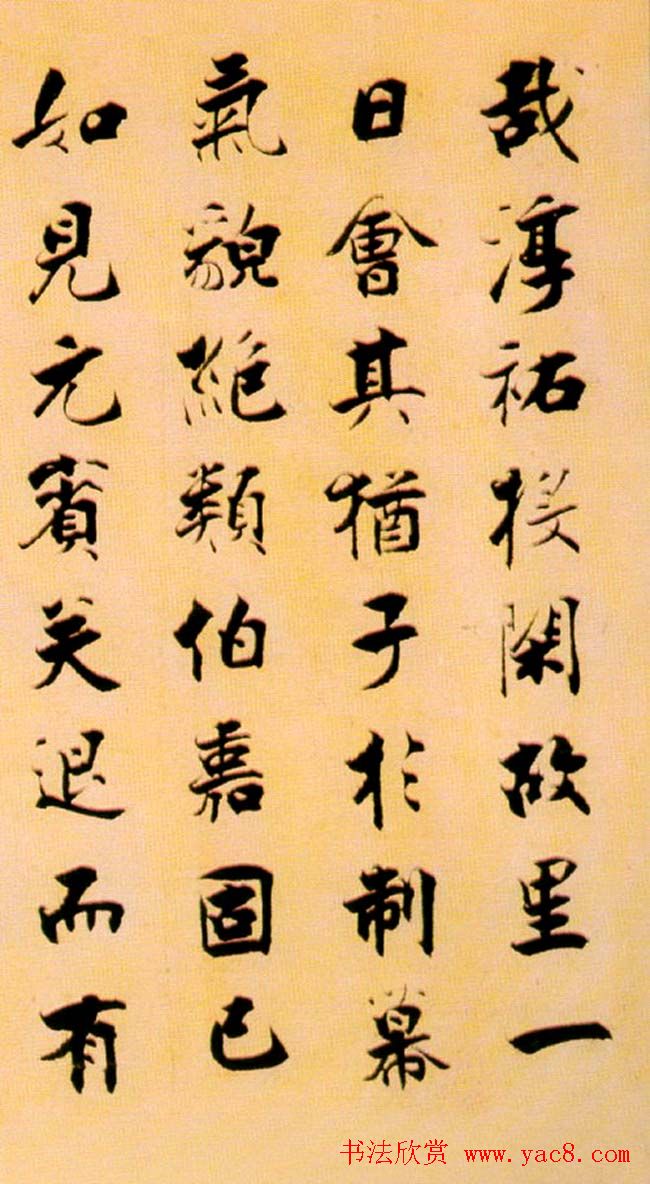 哉淳祐投閑故里一
日會其猶子於制幕
氣貌絶類伯嘉固已
如見元賓矣退而有
书法欣赏 www.yac8.com